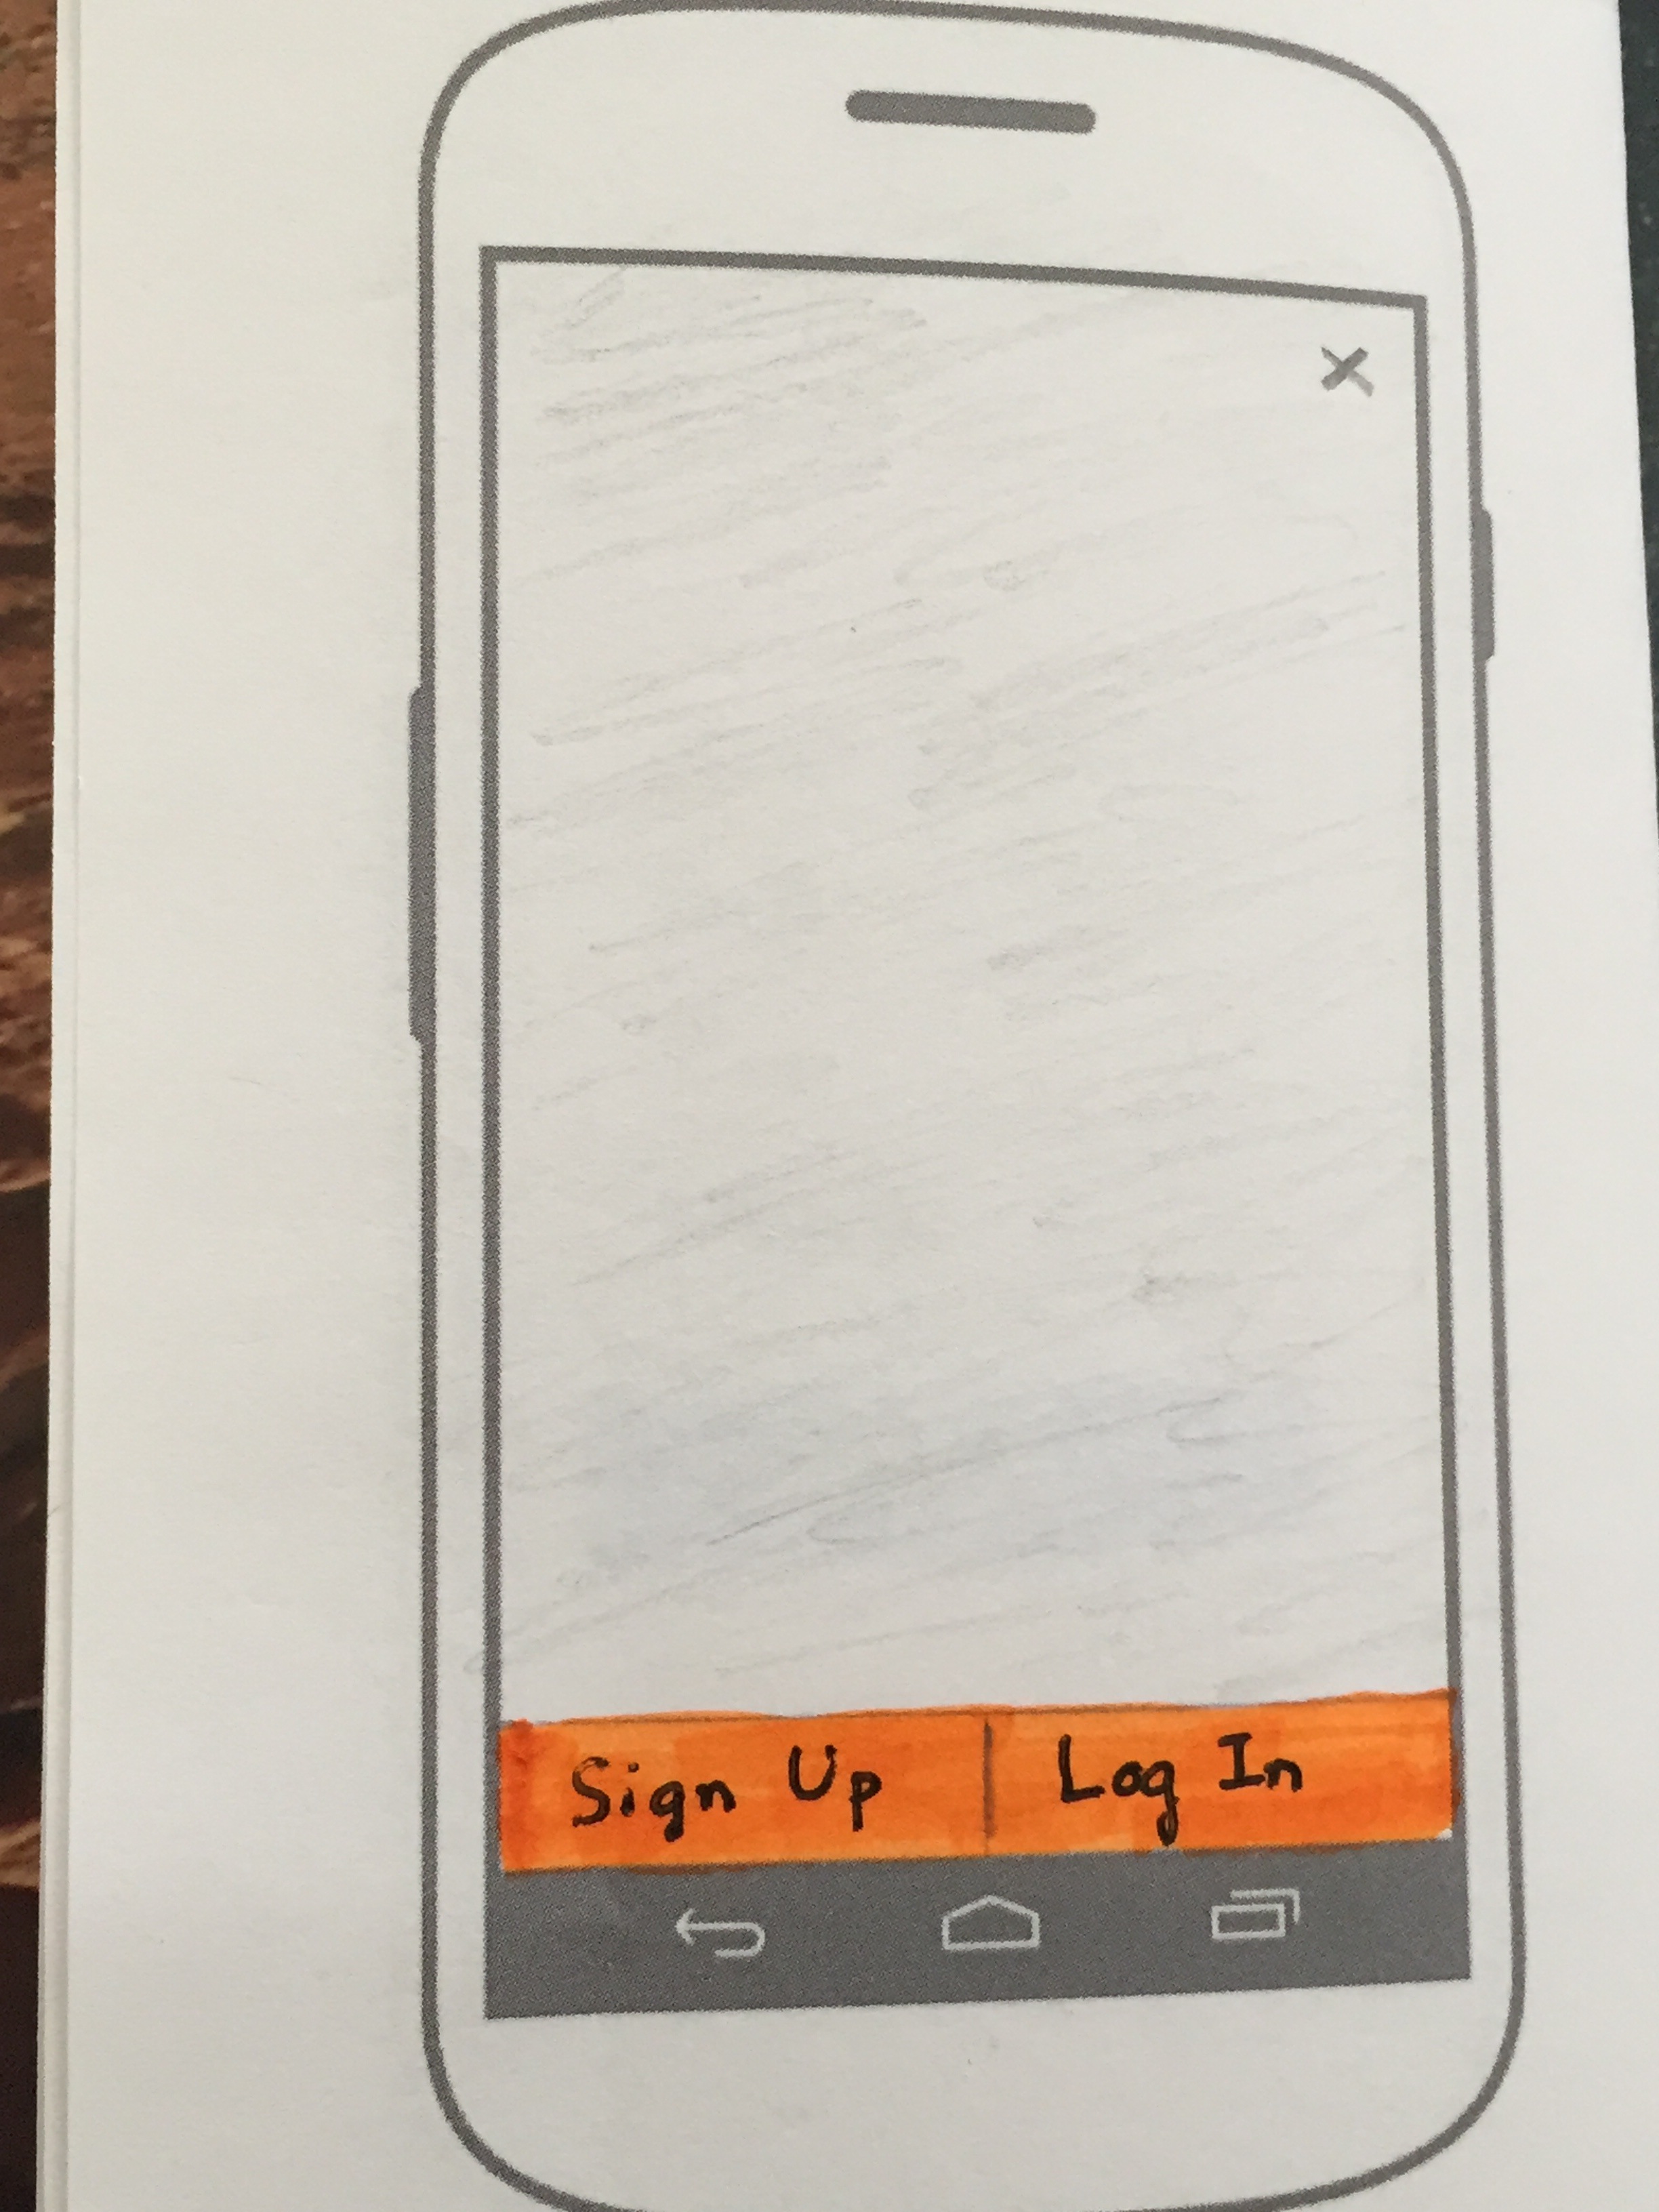 Sign Up | Log In